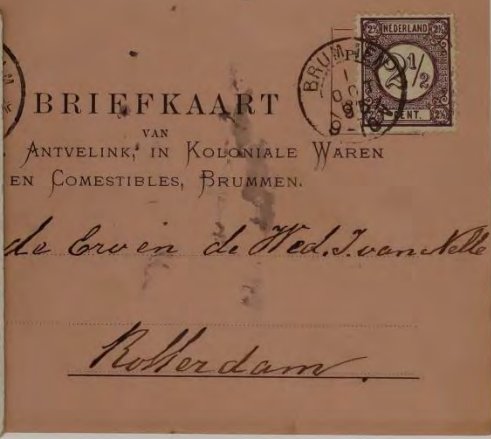 NEDERLAND
2½
CENT.
BRUMMEN
BRIEFKAART
VAN
ANTVELINK, IN KOLONIALE WAREN
EN COMESTIBLES, BRUMMEN.
de Erven de Wed. J. van Nelle
Rotterdam.